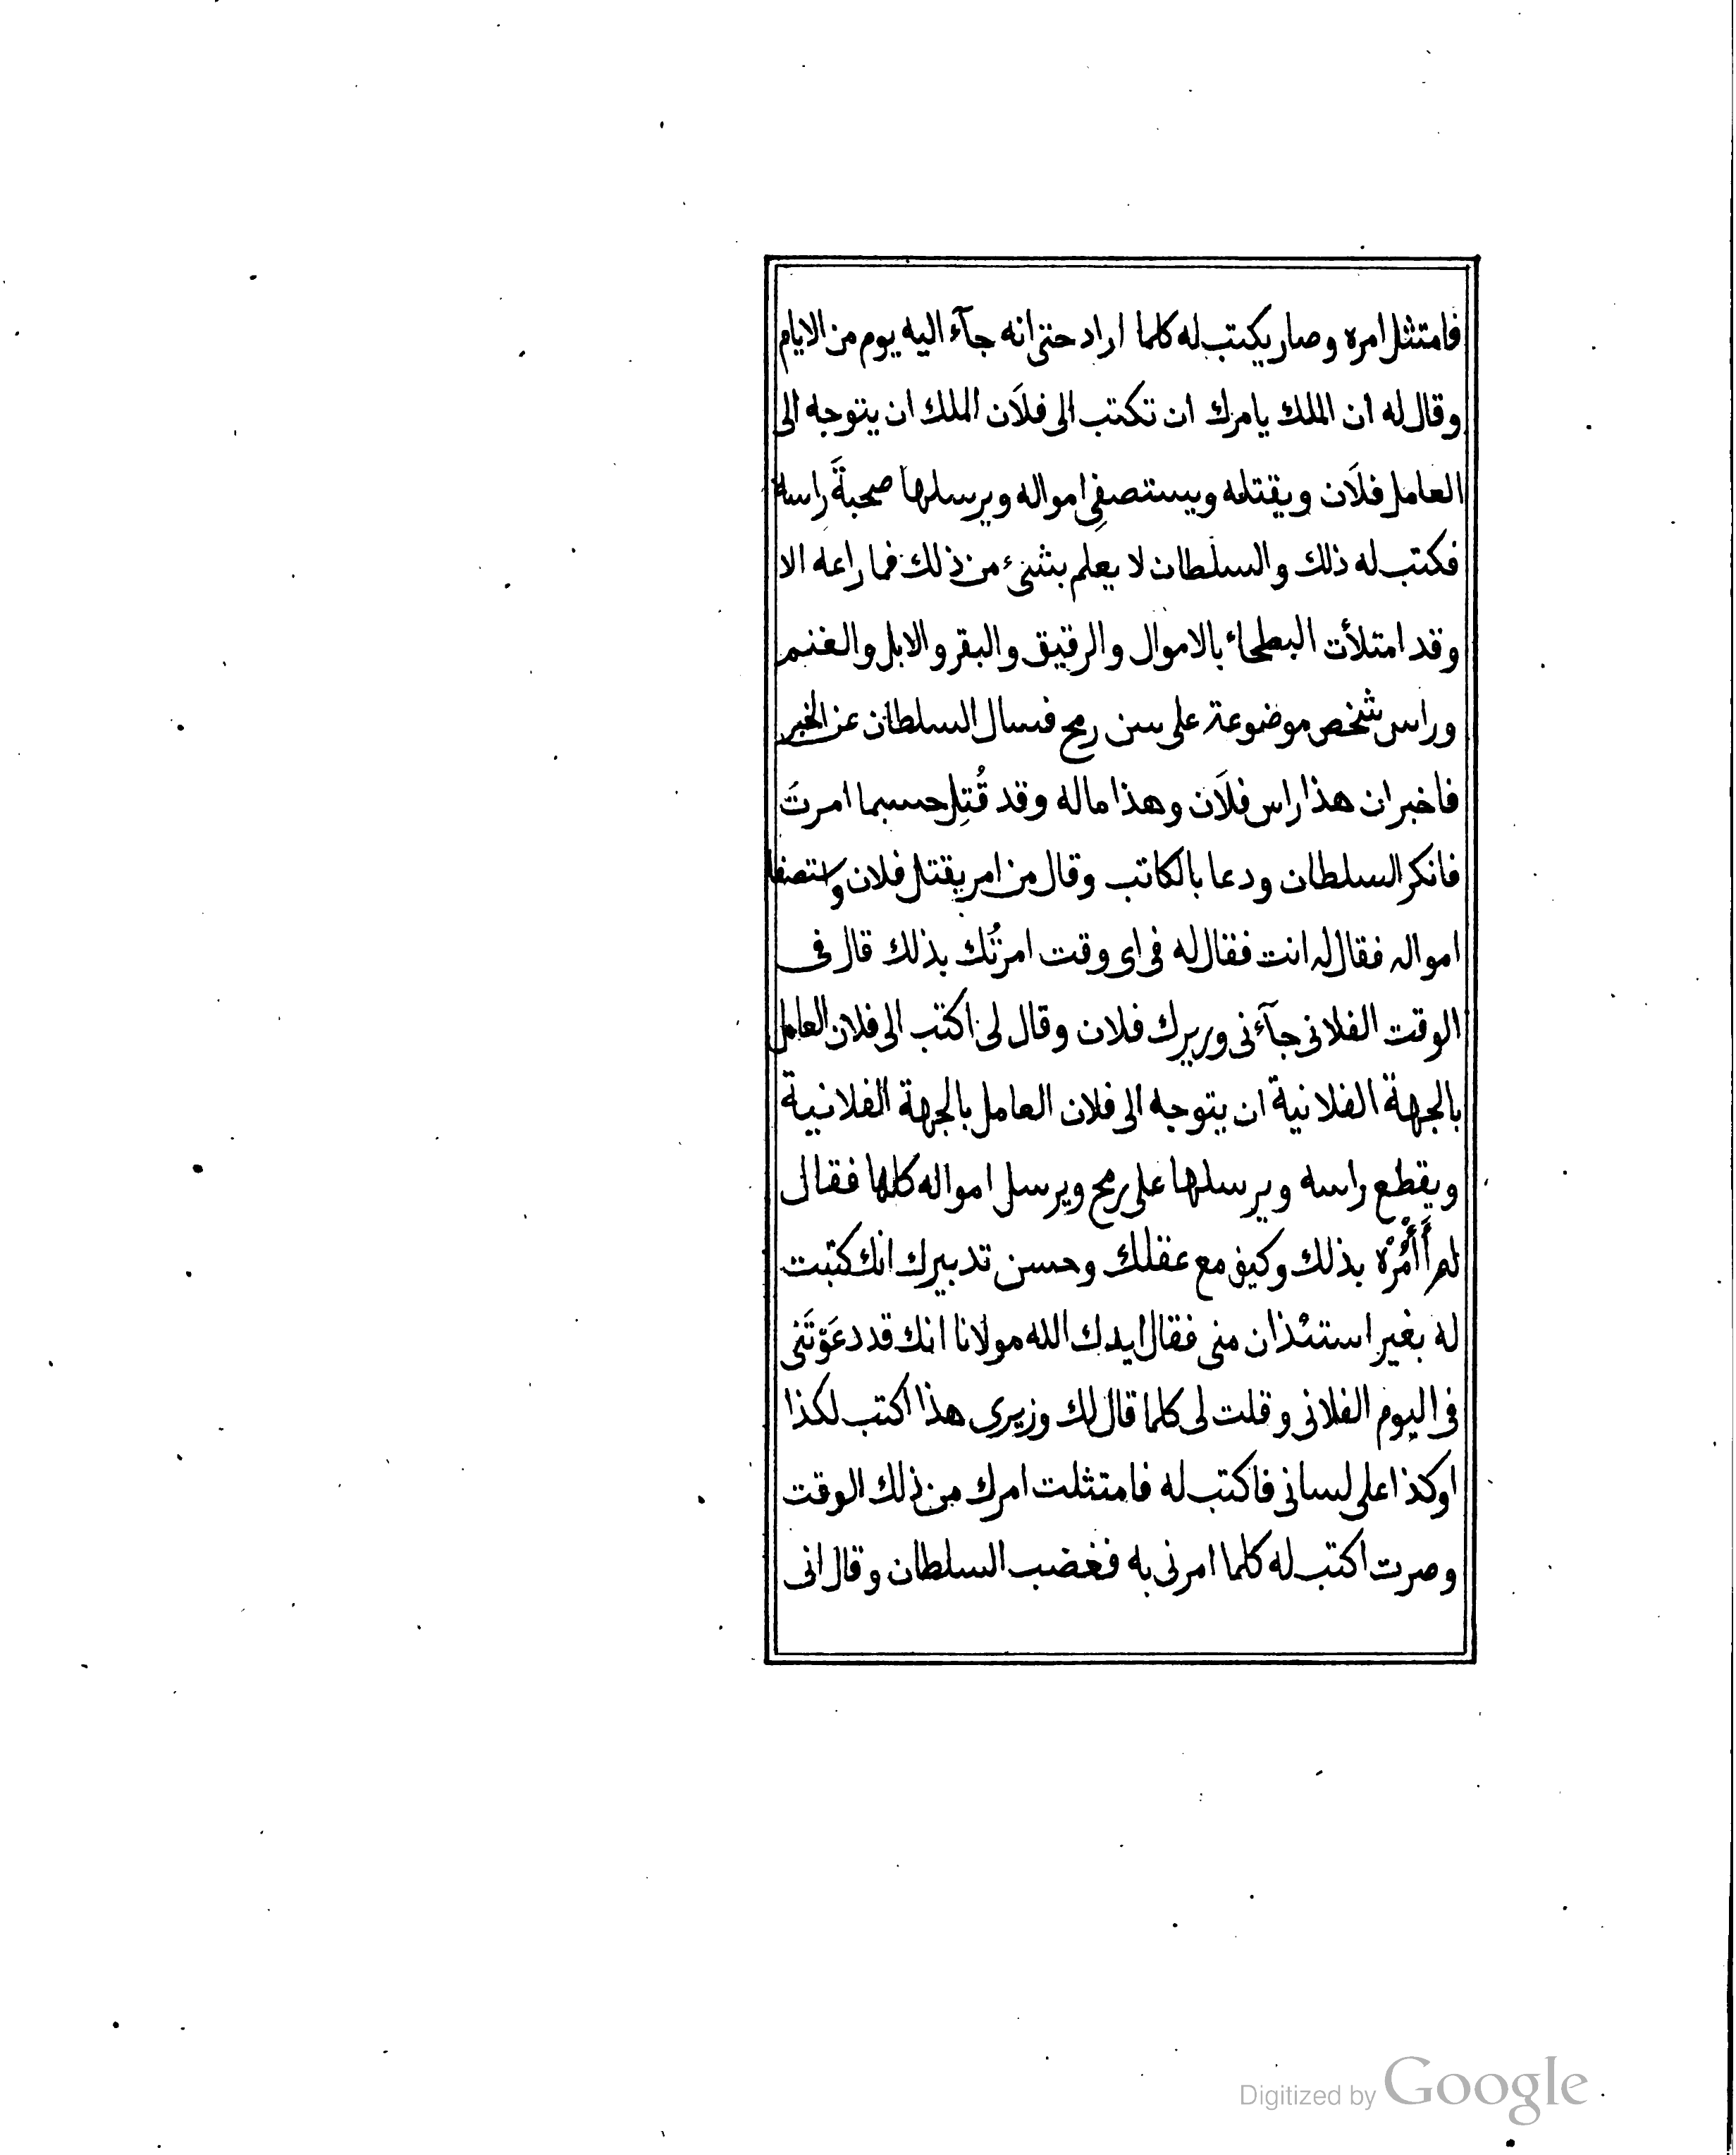 فامتثل امره وصار يكتب له كلما اراد حتى انه جآء اليه يوم من الايام
وقال له ان الملك يامرك ان تكتب الى فلَان الملك ان يتوجه الى
العامل فلَان ويقتله ويستصفِى امواله ويرسلها صحبةَ راسه
فكتب له ذلك والسلطان لا يعلم بشىء من ذلك فما راعه الا
وقد امتلأت البطحاء بالاموال والرقيق والبقر والابل والغنم
وراس شخص موضوعة على سن رمح فسال السلطان عن الخبر
فاخبر ان هذا راس فلَان وهذا ماله وقد قُتِل حسبما امرتَ
فانكر السلطان ودعا بالكاتب وقال من امر بقتل فلان واستصفا
امواله فقال له انت فقال له فى اى وقت امرتُك بذلك قال فى
الوقت الفلانى جآءنى وريرك فلان وقال لى اكتب الى فلان العامل
بالجهة الفلانية ان يتوجه الى فلان العامل بالجهة الفلانية
ويقطع راسه ويرسلها على رمح ويرسل امواله كلها فقال
لم أَأْمُرْه بذلك وكيف مع عقلك وحسن تدبيرك انك كتبت
له بغير استئذان منى فقال ايدك الله مولانا انك قد دعَوْتَنى
فى اليوم الفلانى وقلت لى كلما قال لك وزيرى هذا اكتب لكذا
اوكذا على لسانى فاكتب له فامتثلت امرك من ذلك الوقت
وصرت اكتب له كلما امرنى به فغضب السلطان وقال انى
Digitized by Google